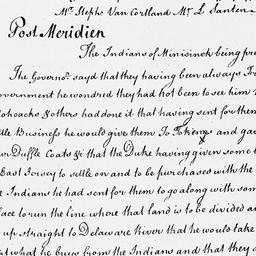 Mr. Stephs Van Cortland Mr. L Santen
Post Meridien
The Indians of Minisinck being pre
The Governor. sayd that they having been always Fr
overnment he wondred they had not been to see him
ohoacks & others had done it that having sent for them
tle Business he would give them To
ur Duffle Coats & that the Duke having given some t
East Jersey to settle on and to be purchased with the
e Indians he had sent for them to go along with som
lace to run the line where that land is to be divided a
up straight to Delaware River that he would take
t what he buys from the Indians and that they